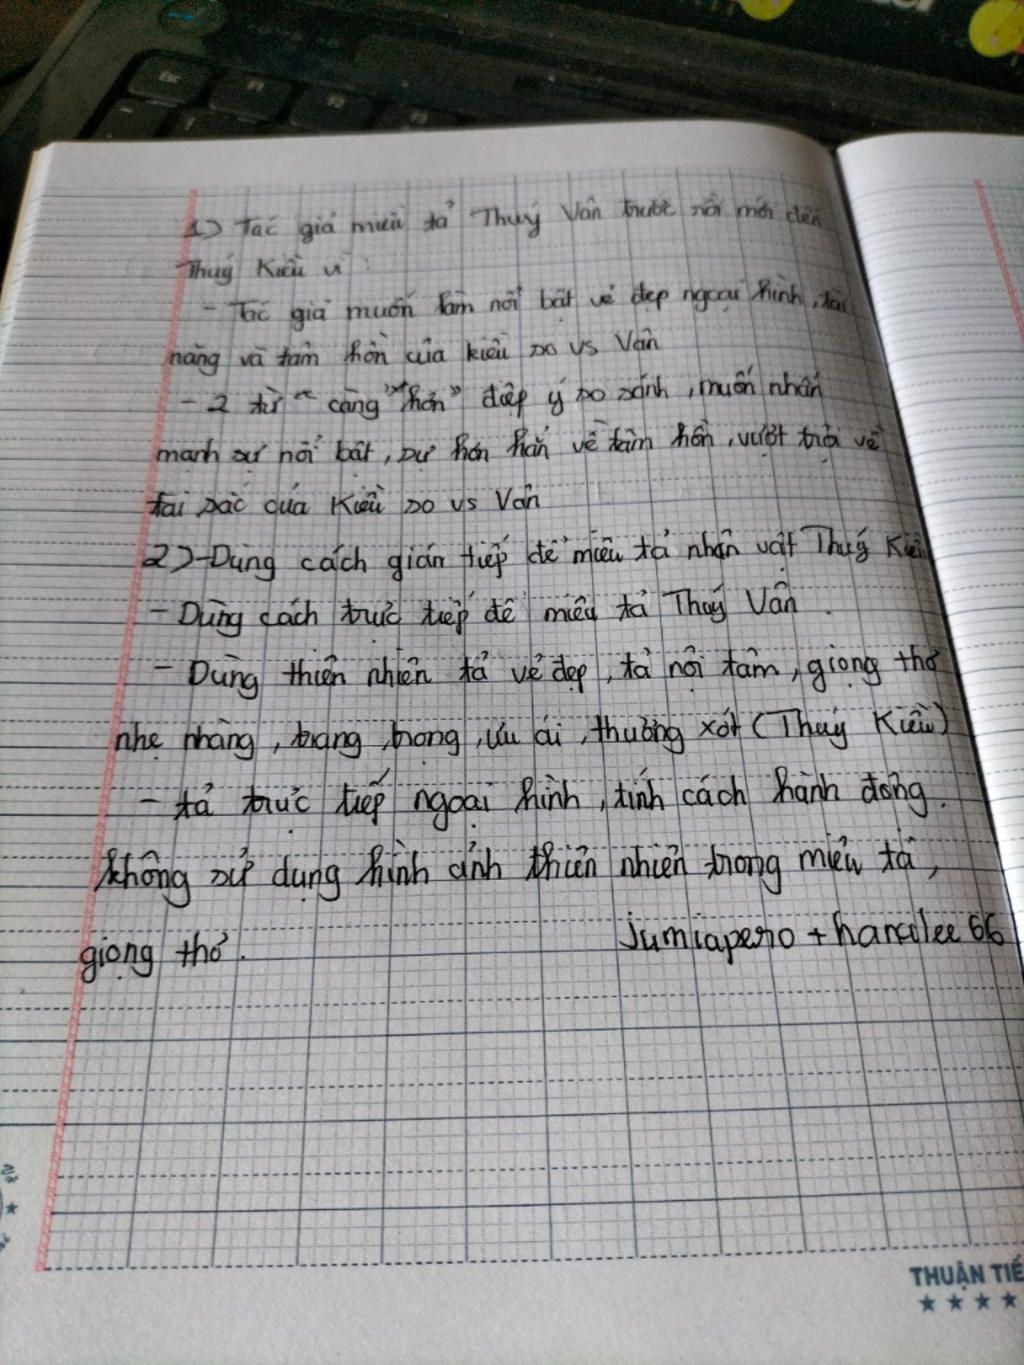 1) Tác giả miêu tả Thuý Vân trước rồi mới đến
Thuý Kiều vì:
- Tác giả muốn làm nổi bật vẻ đẹp ngoại hình, tài
năng và tâm hồn của kiều so vs Vân
- 2 từ "càng" "hơn" điệp ý so sánh, muốn nhấn
mạnh sự nổi bật, sự hơn hẳn về tâm hồn, vượt trội về
tài sắc của Kiều so vs Vân
2) - Dùng cách gián tiếp để miêu tả nhân vật Thuý Kiều
- Dùng cách trực tiếp để miêu tả Thuý Vân.
- Dùng thiên nhiên tả vẻ đẹp, tả nội tâm, giọng thơ
nhẹ nhàng, trang trọng, ưu ái, thương xót (Thuý Kiều)
- tả trực tiếp ngoại hình, tính cách hành động.
không sử dụng hình ảnh thiên nhiên trong miêu tả,
giọng thơ.
Jumiapero + hanalee 66
THUẬN TIẾ